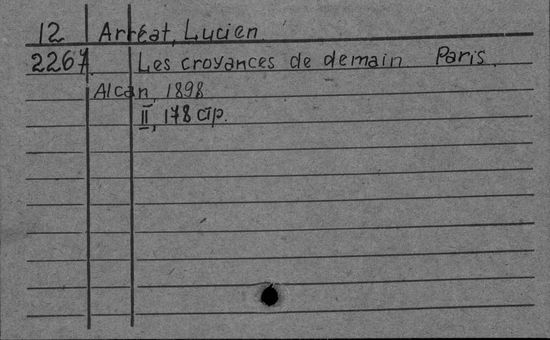 12 Arréat, Lucien
2267 Les croyances de demain Paris.
Alcan, 1898
II, 178 стр.